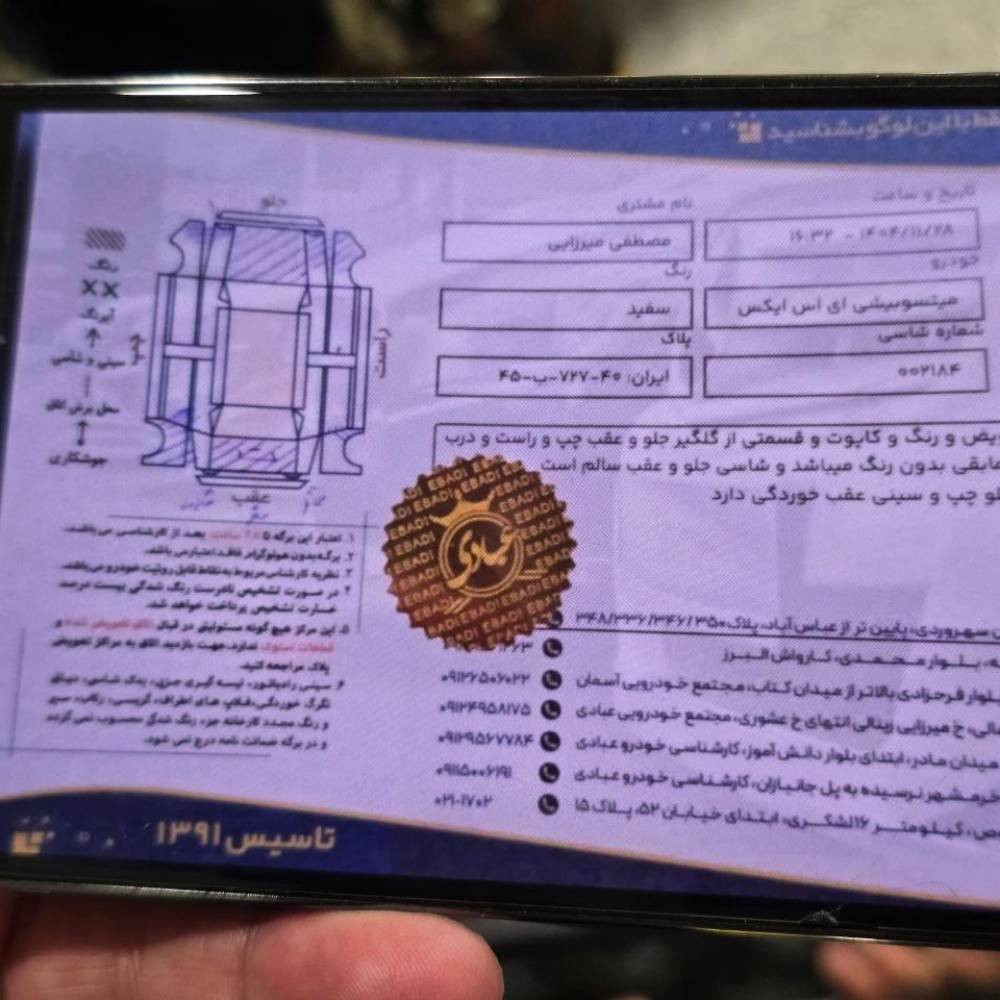 با این لوگو بشناسید
تاریخ و ساعت
نام مشتری
۱۴۰۴/۱۱/۲۸ - ۱۶:۳۲
مصطفی میرزایی
خودرو
رنگ
میتسوبیشی ای اس ایکس
سفید
شماره شاسی
پلاک
۰۰۲۱۸۴
ایران: ۴۰-۷۲۷-ب-۴۵
و رنگ و کاپوت و قسمتی از گلگیر جلو و عقب چپ و راست و درب
مابقی بدون رنگ میباشد و شاسی جلو و عقب سالم است
چپ و سینی عقب خوردگی دارد
جلو
رنگ
XX
آبرنگ
سینی و شاسی
محل برش اتاق
جوشکاری
چپ
راست
عقب
EBADI
عبادی
۱. اعتبار این برگه تا ۴۸ ساعت بعد از کارشناسی می باشد.
۲. برگه بدون هولوگرام فاقد اعتبار می باشد.
۳. نظریه کارشناس مربوط به نقاط قابل رویت خودرو می باشد.
۴. در صورت تشخیص نادرست رنگ شدگی بیست درصد
خسارت تشخیص پرداخت خواهد شد.
۵. این مرکز هیچ گونه مسئولیتی در قبال اتاق تعویض شده و
قطعات استوک ندارد، جهت بازدید اتاق به مراکز تعویض
پلاک مراجعه کنید.
۶. سینی رادیاتور، لیسه گیری جزئی، یدک شاسی، دیاق
تگرگ خوردگی، قلاب های اطراف، گریسی، رکاب، سپر
و رنگ مجدد کارخانه جزء رنگ شدگی محسوب نمی گردد
و در برگه ضمانت نامه درج نمی شود.
سهروردی، پایین تر از عباس آباد، پلاک ۳۴۸/۳۳۶/۳۴۶/۳۵۰
بلوار محمدی، کارواش البرز
بلوار فرحزادی بالاتر از میدان کتاب، مجتمع خودرویی آسمان ۰۹۱۲۶۵۰۶۰۲۲
خ میرزایی زینالی انتهای خ عشوری، مجتمع خودرویی عبادی ۰۹۱۲۴۹۵۸۱۷۵
میدان مادر، ابتدای بلوار دانش آموز، کارشناسی خودرو عبادی ۰۹۱۲۹۵۶۷۷۸۴
خرمشهر نرسیده به پل جانبازان، کارشناسی خودرو عبادی ۰۹۱۱۵۰۰۶۱۹۱
کیلومتر ۱۶ لشکری، ابتدای خیابان ۵۲، پلاک ۱۵ ۰۲۱-۱۷۰۲
تاسیس ۱۳۹۱